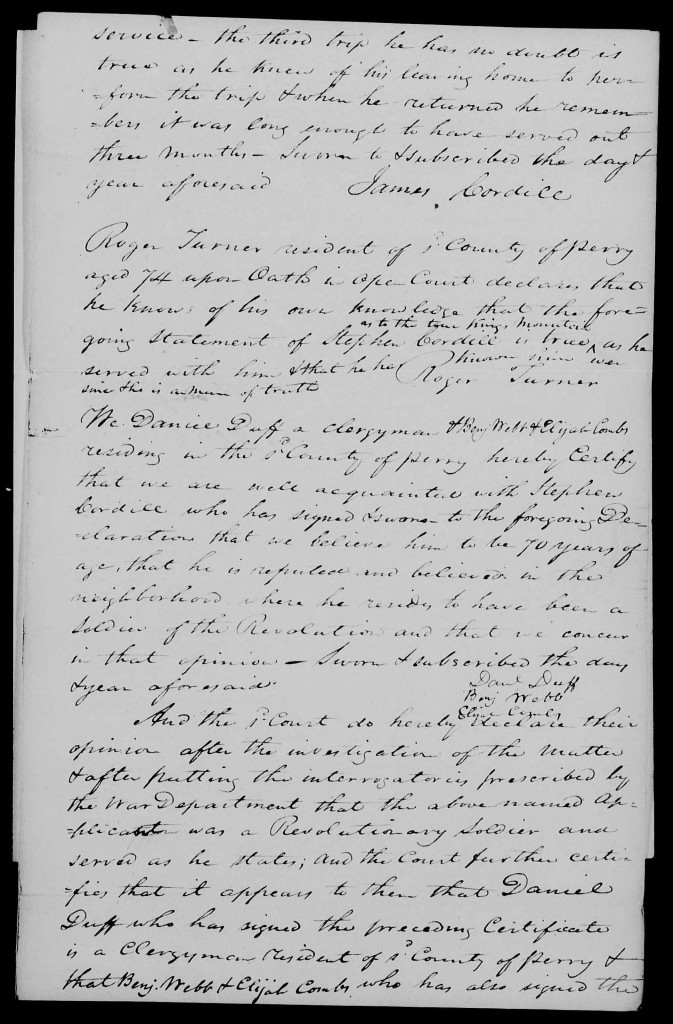 service – the third trip he has no doubt is
true as he knew of his leaving home to per-
=form the trip & when he returned he remem-
=bers it was long enough to have served out
three months – Sworn to & subscribed the day &
year aforesaid James Cordill
Roger Turner resident of sd County of Perry
aged 74 upon Oath in open Court declares that
he knows of his own knowledge that the fore-
as to the tour Kings Mountain
going Statement of Stephen Cordill is true, as he
served with him & that he has known him ever
since & he is a man of truth Roger Turner
We Daniel Duff a clergyman & Benj Webb & Elijah Combs
residing in the sd County of Perry hereby Certify
that we are well acquainted with Stephen
Cordill who has signed & sworn to the foregoing De-
=claration that we believe him to be 70 years of
age, that he is reputed and believed in the
neighborhood where he resides to have been a
Soldier of the Revolution and that we concur
in that opinion – Sworn & subscribed the day
& year aforesaid
Danl Duff
Benj Webb
Elijah Combs
And the sd Court do hereby declare their
opinion after the investigation of the matter
& after putting the interrogatories prescribed by
the War Department that the above named Ap-
=plicant was a Revolutionary Soldier and
served as he states; and the Court further certi-
=fies that it appears to them that Daniel
Duff who has signed the preceding Certificate
is a Clergyman resident of sd County of Perry &
that Benj. Webb & Elijah Combs who has also signed the